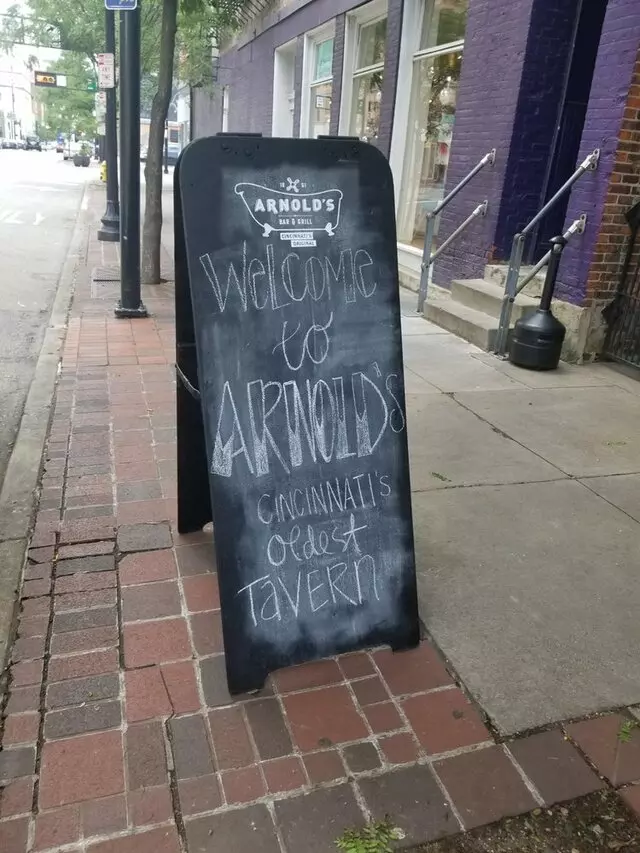 18 61
ARNOLD'S
BAR & GRILL
CINCINNATI'S
ORIGINAL
WELCOMe
to
ARNOLD'S
CINCINNATI'S
oldest
TAVERN